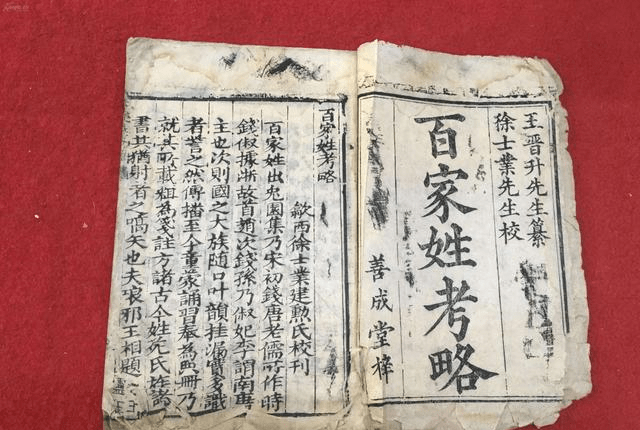 王晋升先生纂
徐士業先生校
百家姓考略
善成堂梓
百家姓考略
歙西徐士業建勲氏校刊
百家姓出兔園集乃宋初錢唐老儒所作時
錢俶據浙故首趙次錢孫乃俶妃李謂南唐
主也次則國之大族隨口叶韻挂漏實多識
者訾之然傳播至今童蒙誦習奉為典冊乃
就其所載粗為箋註方諸古今姓氏族諸
書其猶射者之嚆矢也夫琅邪王相題